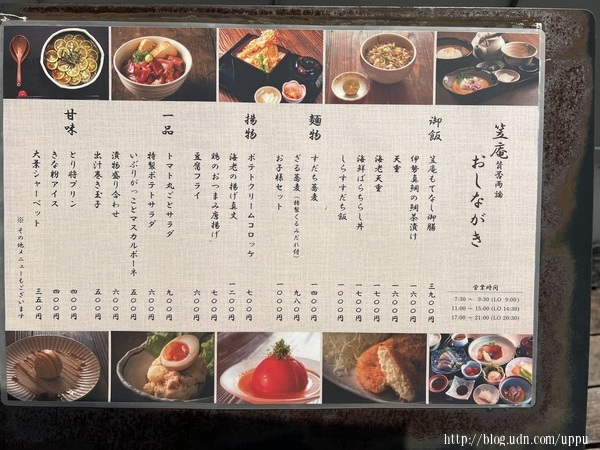 笠庵 賛否両論
おしながき
営業時間
7:30 ～ 9:30 (LO 9:00)
11:00 ～ 15:00 (LO 14:30)
17:00 ～ 21:00 (LO 20:30)
御飯
笠庵もてなし御膳 三九〇〇円
伊勢真鯛の鯛茶漬け 一六〇〇円
天重 一六〇〇円
海老天重 一七〇〇円
海鮮ばらちらし丼 一七〇〇円
しらすすだち飯 一〇〇〇円
麺物
すだち蕎麦 一四〇〇円
ざる蕎麦（特製くるみだれ付） 九八〇円
お子様セット 一〇〇〇円
揚物
ポテトクリームコロッケ 七〇〇円
海老の揚げ真丈 一二〇〇円
鶏のおつまみ唐揚げ 七〇〇円
豆腐フライ 六〇〇円
一品
トマト丸ごとサラダ 九〇〇円
特製ポテトサラダ 六〇〇円
いぶりがっことマスカルポーネ 五〇〇円
漬物盛り合わせ 六〇〇円
出汁巻き玉子 五〇〇円
甘味
とり将プリン 四〇〇円
きな粉アイス 四〇〇円
大葉シャーベット 三五〇円
※その他メニューもございます
http://blog.udn.com/uppu